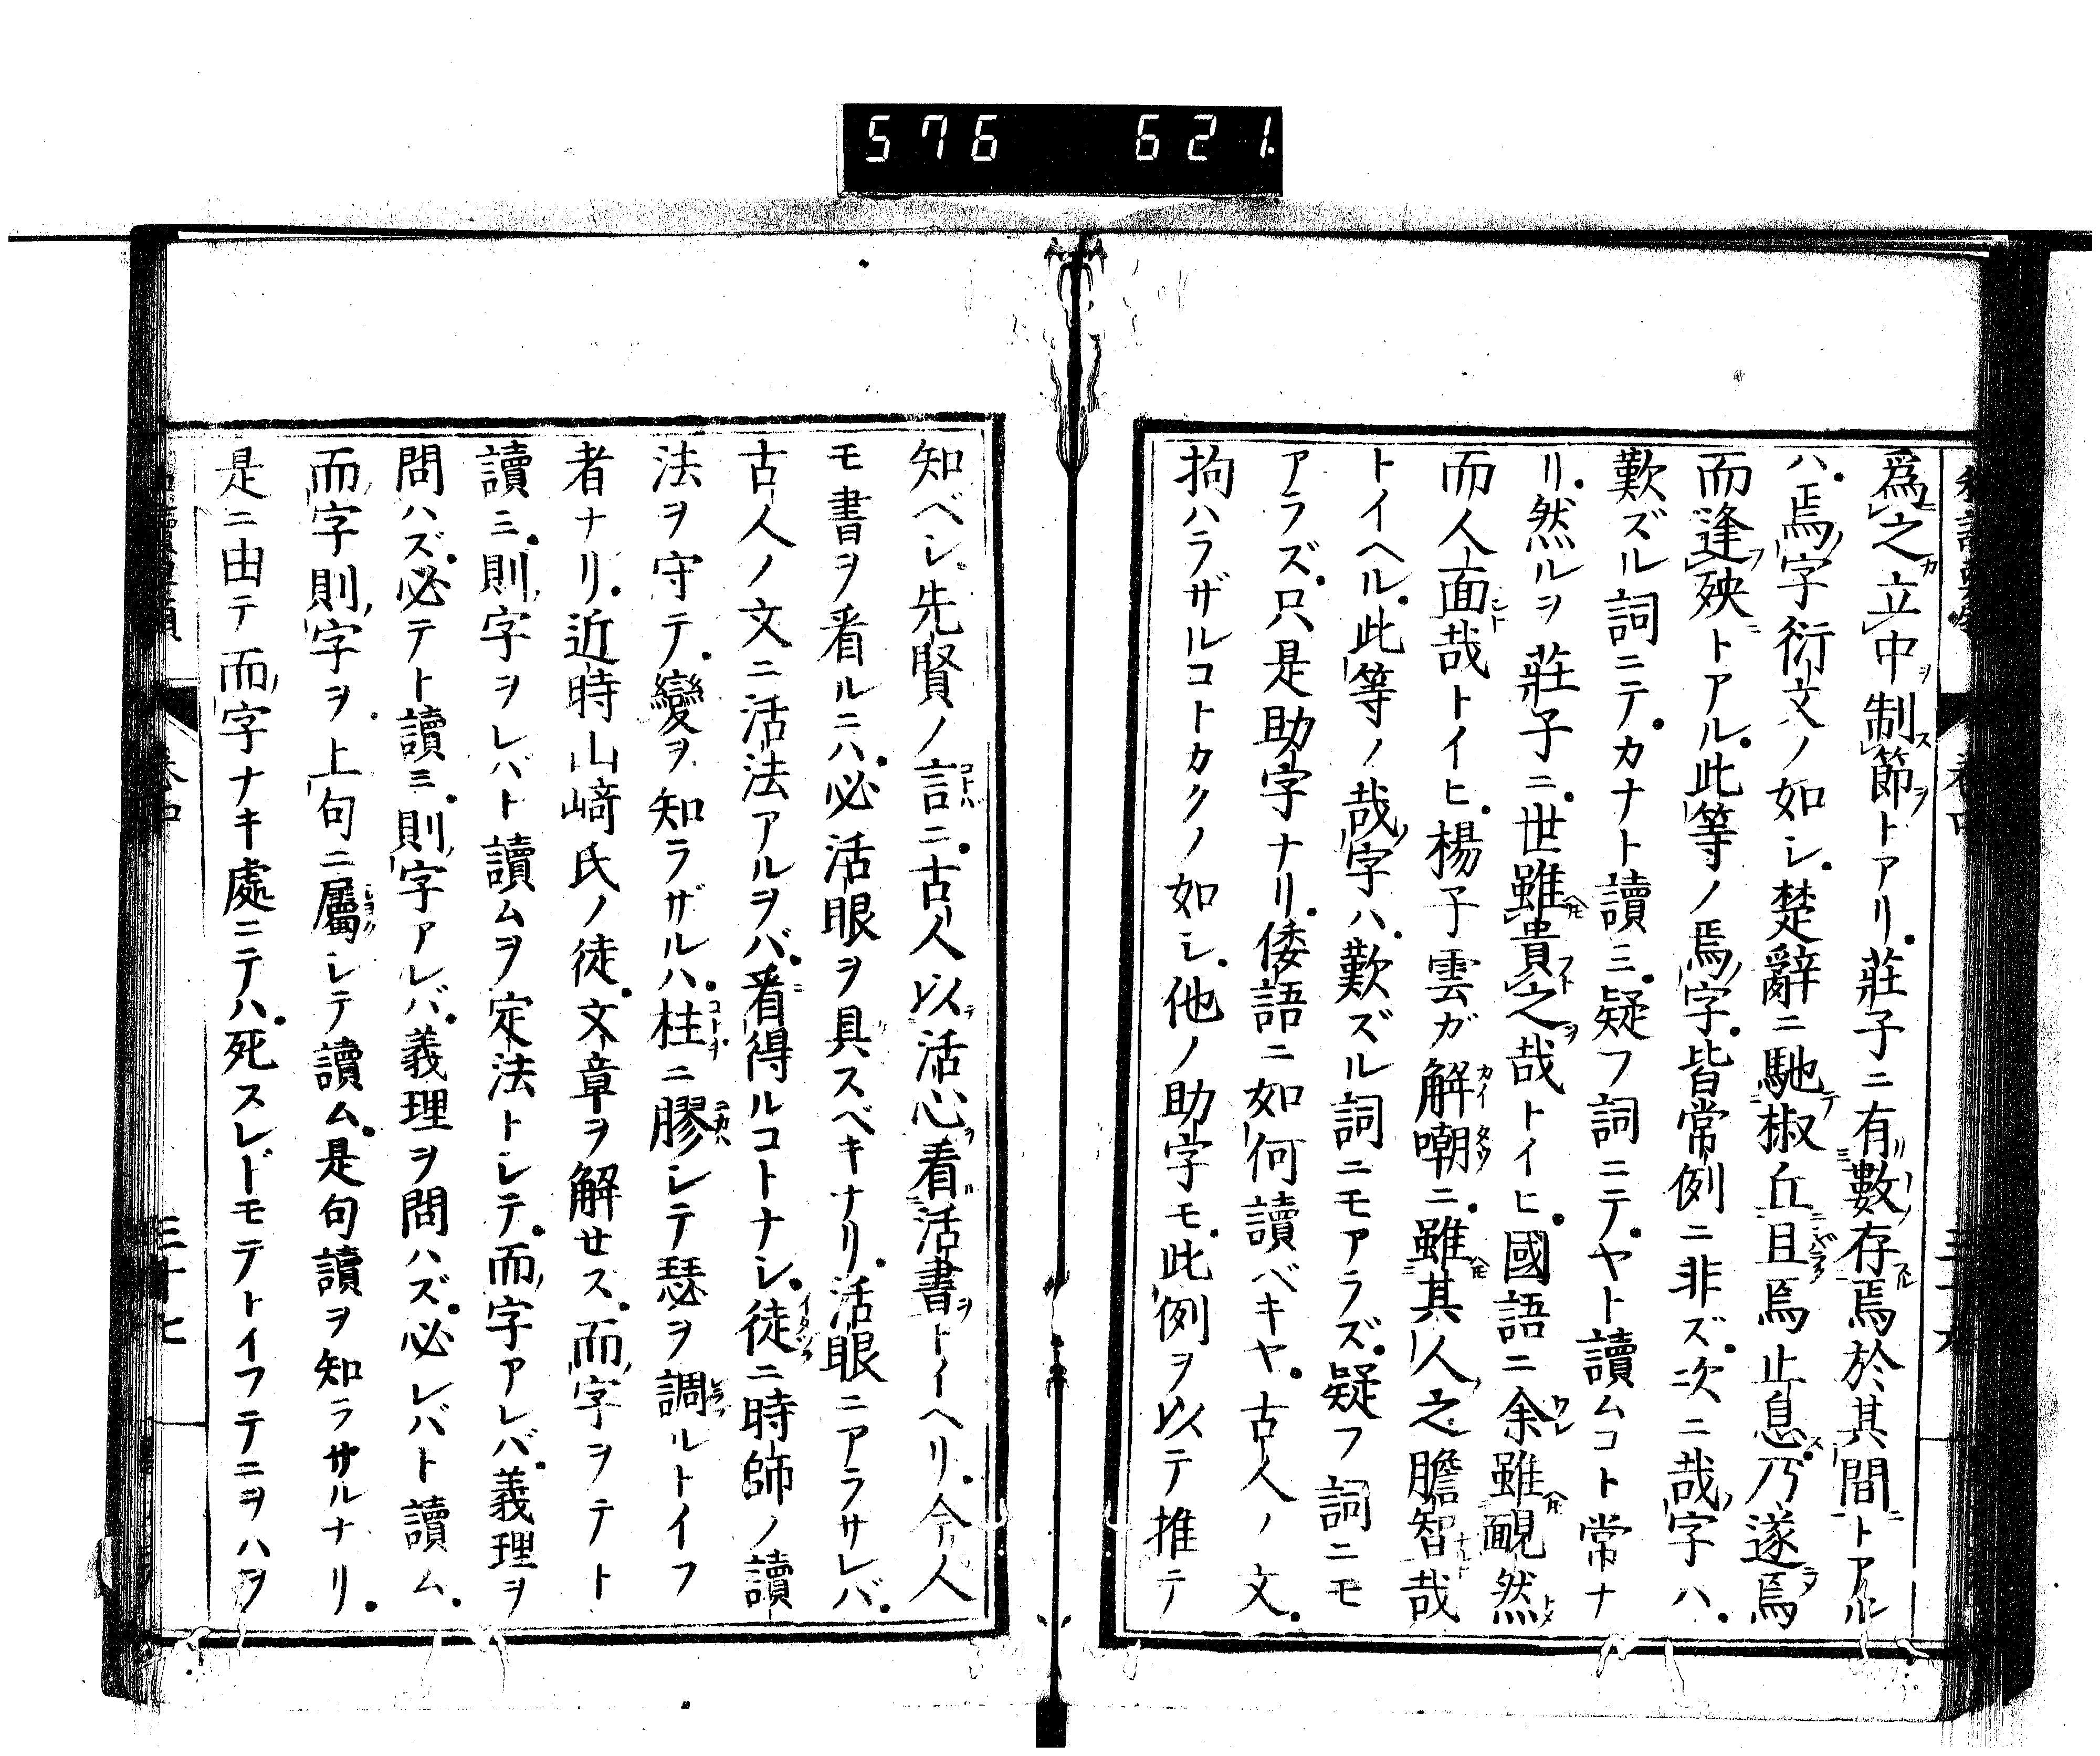 576 621.
爲之立中制節トアリ莊子ニ有數存焉於其間トアル
ハ焉字衍文ノ如シ楚辭ニ馳椒丘且焉止息乃遂焉
而逢殃トアル此等ノ焉字皆常例ニ非ズ次ニ哉字ハ
歎ズル詞ニテカナト讀ミ疑フ詞ニテヤト讀ムコト常ナ
リ然ルヲ莊子ニ世雖貴之哉トイヒ國語ニ余雖靦然
而人面哉トイヒ楊子雲ガ解嘲ニ雖其人之膽智哉
トイヘル此等ノ哉字ハ歎ズル詞ニモアラズ疑フ詞ニモ
アラズ只是助字ナリ倭語ニ如何讀ベキヤ古人ノ文
拘ハラザルコトカクノ如シ他ノ助字モ此例ヲ以テ推テ
知ベシ先賢ノ言ニ古人以活心看活書トイヘリ今人
モ書ヲ看ルニハ必活眼ヲ具スベキナリ活眼ニアラサレバ
古人ノ文ニ活法アルヲバ看得ルコトナシ徒ニ時師ノ讀
法ヲ守テ變ヲ知ラザルハ柱ニ膠シテ瑟ヲ調ルトイフ
者ナリ近時山﨑氏ノ徒文章ヲ解セス而字ヲテト
讀ミ則字ヲレバト讀ムヲ定法トシテ而字アレバ義理ヲ
問ハズ必テト讀ミ則字アレバ義理ヲ問ハズ必レバト讀ム
而字則字ヲ上句ニ屬シテ讀ム是句讀ヲ知ラサルナリ
是ニ由テ而字ナキ處ニテハ死スレドモテトイフテニヲハヲ
卷中
三十七